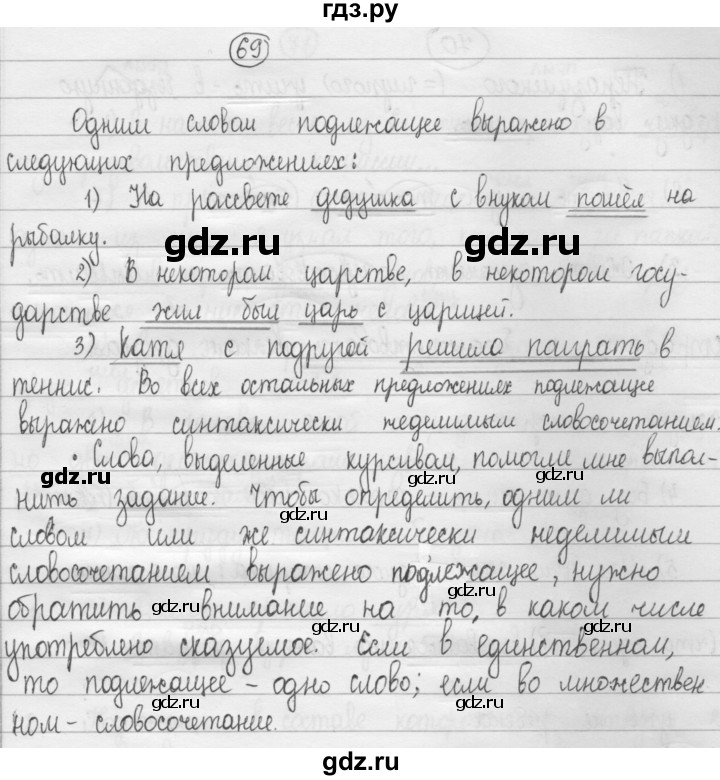 гдз.ру
69
Одним словом подлежащее выражено в
следующих предложениях:
1) На рассвете дедушка с внуком пошёл на
рыбалку.
gdz.ru gdz.ru
2) В некотором царстве, в некотором госу-
дарстве жил был царь с царицей.
gdz.ru
3) Катя с подругой решила поиграть в
теннис. Во всех остальных предложениях подлежащее
gdz.ru
выражено синтаксически неделимым словосочетанием.
Слова, выделенные курсивом, помогли мне выпол-
gdz.ru gdz.ru
нить задание. Чтобы определить, одним ли
gdz.ru
словом или же синтаксически неделимым
словосочетанием выражено подлежащее, нужно
gdz.ru
обратить внимание на то, в каком числе
gdz.ru
употреблено сказуемое. Если в единственном,
gdz.ru gdz.ru
то подлежащее - одно слово; если во множествен
ном - словосочетание.
gdz.ru